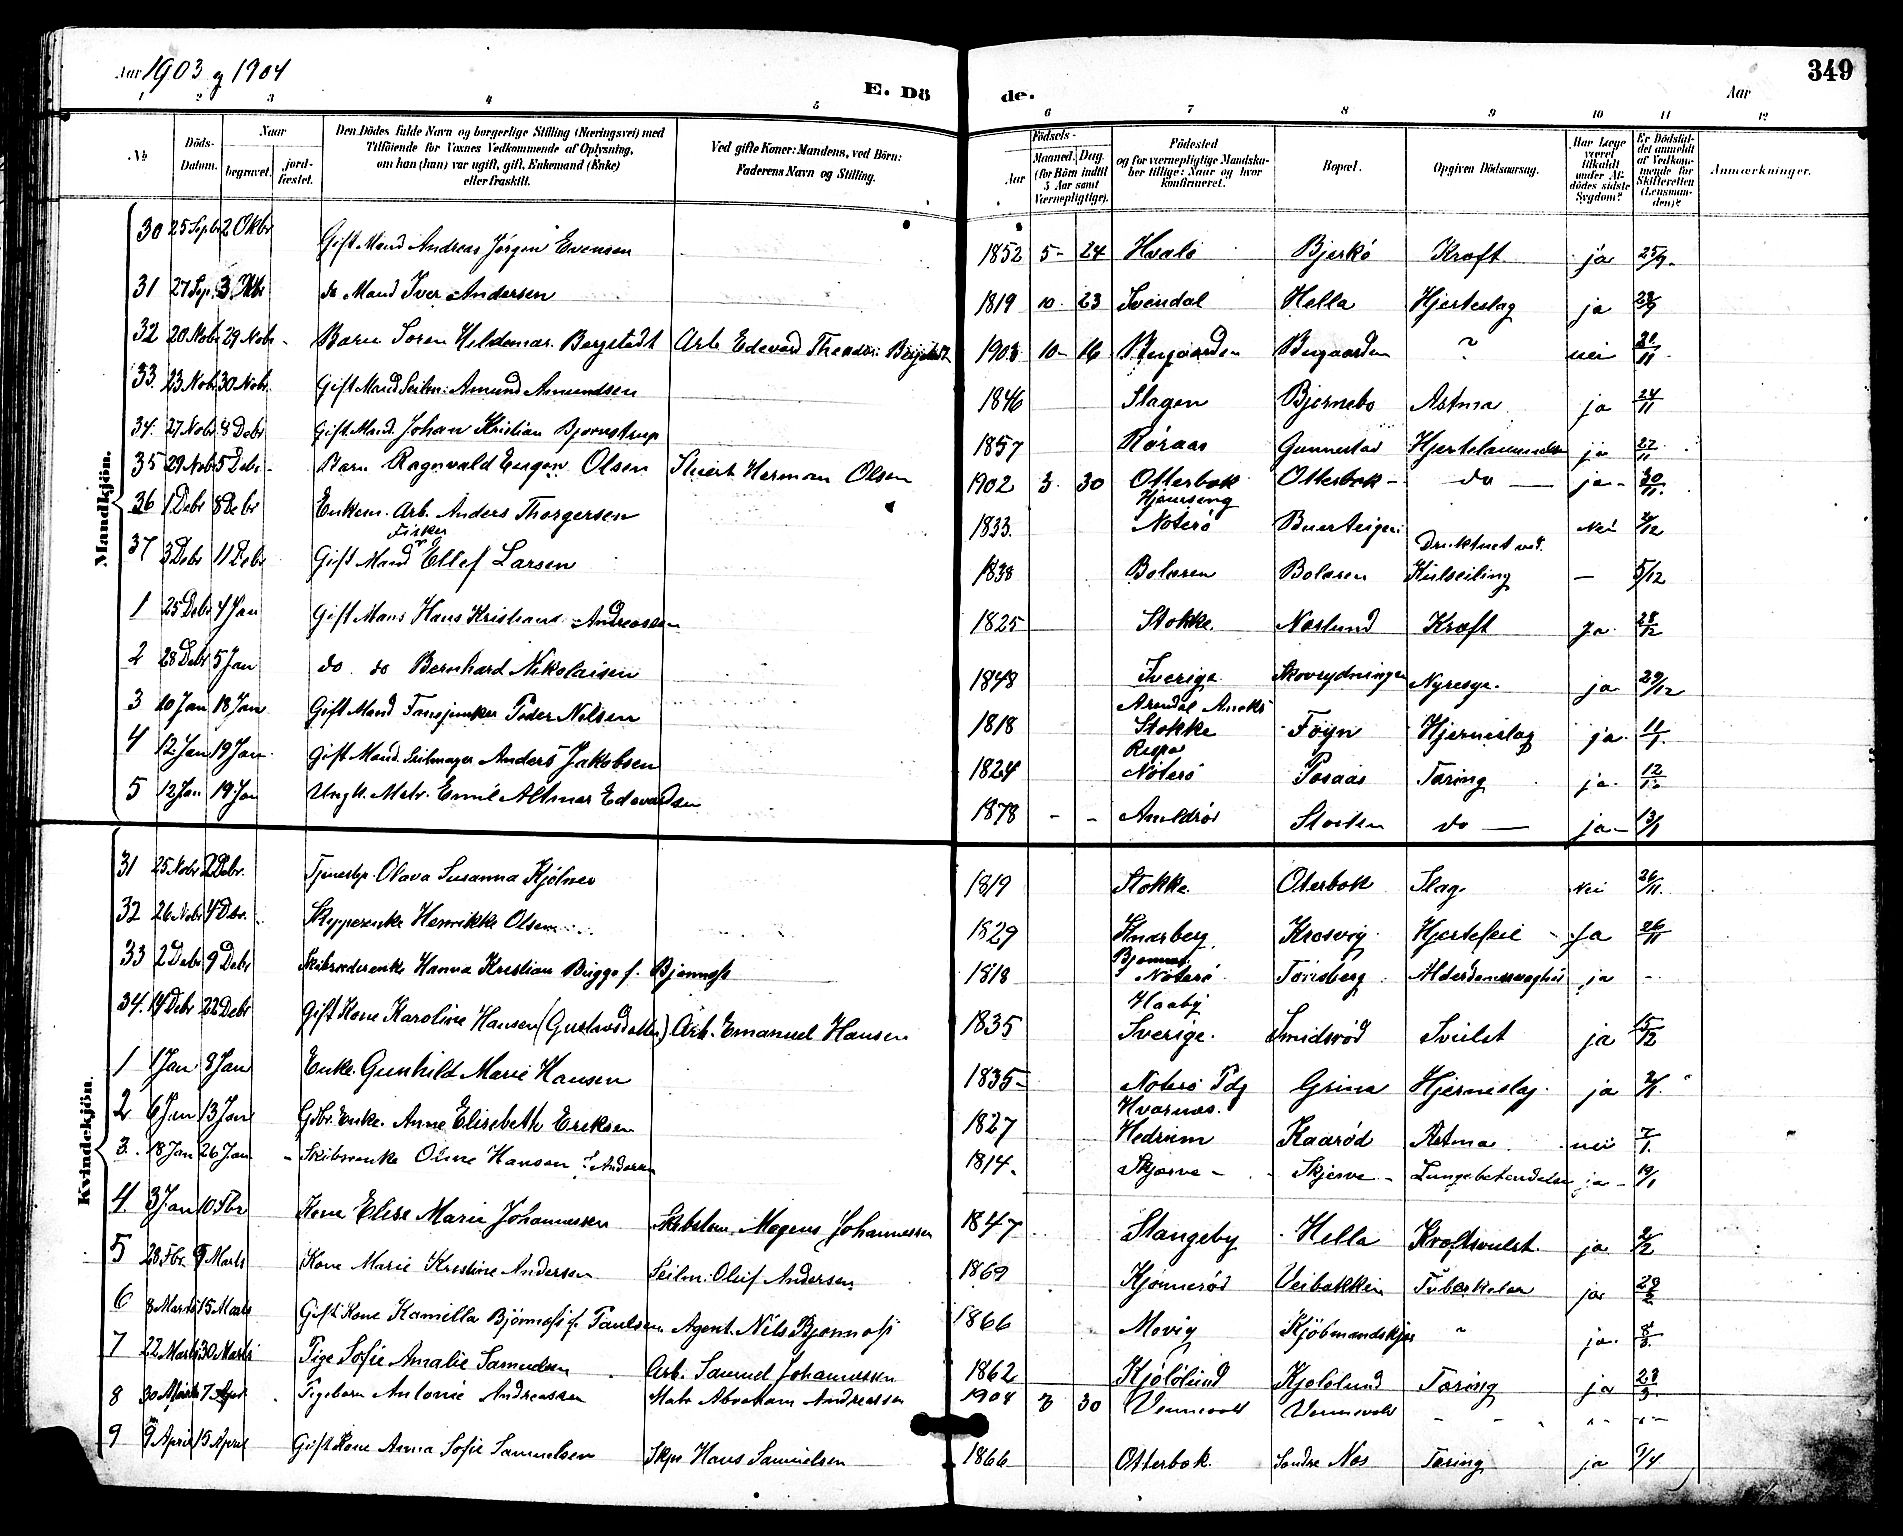 Aar 1903 og 1904
E. Döde.
Aar
349
1 2 3 4 5 6 7 8 9 10 11 12
No
Döds-Datum.
Naar begravet.
jord-fæstet.
Den Dödes fulde Navn og borgerlige Stilling (Næringsvei) med Tilföiende for Voxnes Vedkommende af Oplysning, om han (hun) var ugift, gift, Enkemand (Enke) eller fraskilt.
Ved gifte Koner: Mandens, ved Börn: Faderens Navn og Stilling.
Födsels-
Aar
Maaned. Dag. (for Börn indtil 5 Aar samt Værnepligtige).
Födested og for værnepligtige Mandskaber tillige: Naar og hvor konfirmeret.
Bopæl.
Opgiven Dödsaarsag.
Har Læge været tilkaldt under Afdödes sidste Sygdom?
Er Dödsfaldet anmeldt af Vedkommende for Skifteretten (Lensmanden)?
Anmærkninger.
Mandkjön.
30 25 Septbr 2 Oktbr Gift Mand Andreas Jörgen Evensen 1852 5 - 24 Hvalö Bjerkö Kræft ja 25/9
31 27 Sep. 3 Oktbr do Mand Iver Andersen 1819 10 23 Svendal Hella Hjerteslag ja 28/9
32 20 Nobr 29 Nobr - Barn Soren Heldemar Bergstedt Arb Edevard Theodor Bergstedt 1903 10 - 16 Bugaarden Bugaarden ? nei 21/11
33 23 Nobr 30 Nobr Gift Mand Seilm: Amund Amundsen 1846 Slagen Bjernebo Astma ja 24/11
34 27 Nobr 8 Debr Gift Mand Johan Kristian Bjornstrup 1857 Röraas Gunnestad ja 27/11
35 29 Nobr 5 Debr - Barn Ragnvald Eugen Olsen Herman Olsen 1902 3 30 Otterbok Otterbok - do - ja - 30/11
36 1 Debr 8 Debr Enkem. Arb. Anders Thorgersen 1833 Hjemseng Noterö Buerteigen Nei 2/12
37 3 Debr 11 Debr Gift Mand Fisker Ellef Larsen 1838 Bolæren Bolæren Druktnet ved Kulseiling - 5/12
1 25 Debr 4 Jan Gift Mand Hans Kristians Andreassen 1825 Stokke Næslund Kræft Ja 28/12
2 28 Debr 5 Jan do do Bernhard Nikolaisen 1848 Sverige Skovrydningen Nyresyg. ja 29/12
3 10 Jan 18 Jan Gift Mand Fansjunker Peder Nilsen 1818 Arendal Aneks Stokke Föyn Hjerneslag ja 11/1
4 12 Jan 19 Jan Gift Mand Seilmager Anders Jakobsen 1824 Nöterö Posaas Tæring ja 12/1
5 12 Jan 19 Jan Ungk. Matr. Emil Altmar Edevardsen 1878 - - Amldröd Slotten do - ja - 13/1
Kvindekjön.
31 25 Nobr 2 Debr. Olava Susanna Kjölner 1819 Stokke Oterbok Slag Nei 26/11
32 26 Nobr 4 Debr. Skipperenke Henrikke Olsen 1829 Knarberg Krosvig Hjertefeil - Ja 26/11
33 2 Debr 9 Debr Skibsrederenke Hanna Kristian Bugge f. Bjonness 1818 Bjonnes Noterö Tönsberg Alderdomssvaghed ja -
34 14 Debr 22 Debr Gift Kone Karoline Hansen (Gustavsdatter) Arb. Emanuel Hansen 1835 Haaby Sverige Smidsröd Svulst ja 15/12
1 1 Jan 8 Jan Enke Gunhild Marie Hansen 1835 - Noterö Pdg Grina Hjerneslag. ja 2/1
2 6 Jan 13 Jan Gdbr. Enke. Anne Elisabeth Eriksen 1827 Hvarnes Hedrum Kaaröd Astma nei 7/1
3 18 Jan 26 Jan - Oline Hansen f. Andersen 1814 - Skjerve - Skjerve - Lungebetændelse ja - 19/1
4 3 Jan 10 Fbr Kone Elise Marie Johannessen Skibstom. Magnus Johannessen 1847 Stangeby Hella Kræftsvulst. ja 2/2
5 28 Fbr. 9 Marts Kone Marie Kristine Andersen Seilm. Oluf Andersen 1869 Kjonneröd Veibakken Tuberkelose ja 29/2
6 8 Marts 15 Marts Gift Kone Kamilla Björness f. Paulsen Agent. Nils Bjonness 1866 Movig Kjöbmandskjær " ja 8/3
7 22 Marts 30 Marts Pige Sofie Amalie Samuelsen Arb. Samuel Johannessen 1862 Kjölölund Kjölölund Tæring ja 23/3
8 30 Marts 7 Apr Pigebarn Antonie Andreassen Matr Abraham Andreassen 1904 3 30 Vennevold Vennevold - - - " " " -
9 9 April 15 April Gift Kone Anna Sofie Samuelsen Skpr Hans Samuelsen 1866 Otterbok. Söndre Næs Tæring ja 9/4